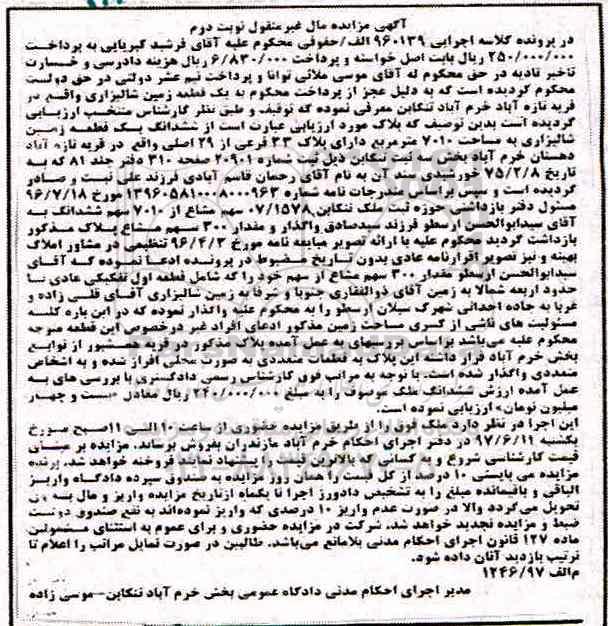 آگهی مزایده مال غیرمنقول نوبت دوم
در پرونده کلاسه اجرایی ۹۶۰۱۳۹ الف/حقوقی محکوم علیه آقای فرشید کبریایی به پرداخت
۲۵۰/۰۰۰/۰۰۰ ریال بابت اصل خواسته و پرداخت ۶/۸۳۰/۰۰۰ ریال هزینه دادرسی و خسارت
تاخیر تادیه در حق محکوم له آقای موسی ملائی توانا و پرداخت نیم عشر دولتی در حق دولت
محکوم گردیده است که به دلیل عجز از پرداخت محکوم به یک قطعه زمین شالیزاری واقع در
قریه تازه آباد خرم آباد تنکابن معرفی نموده که توقیف و طبق نظر کارشناس منتخب ارزیابی
گردیده است بدین توصیف که پلاک مورد ارزیابی عبارت است از ششدانگ یک قطعه زمین
شالیزاری به مساحت ۷۰۱۰ مترمربع دارای پلاک ۲۳ فرعی از ۲۹ اصلی واقع در قریه تازه آباد
دهستان خرم آباد بخش سه ثبت تنکابن ذیل ثبت شماره ۲۰۹۰۱ صفحه ۳۱۰ دفتر جلد ۸۱ که به
تاریخ ۷۵/۲/۸ خورشیدی سند آن به نام آقای رحمان قاسم آبادی فرزند علی ثبت و صادر
گردیده است و سپس براساس مندرجات نامه شماره ۱۳۹۶۰۵۸۱۰۰۰۸۰۰۰۹۶۳ مورخ ۹۶/۷/۱۸
مسئول دفتر بازداشتی حوزه ثبت ملک تنکابن ۰۷/۱۵۷۸ سهم مشاع از ۷۰۱۰ سهم ششدانگ به
آقای سیدابوالحسن ارسطو فرزند سیدصادق واگذار و مقدار ۳۰۰ سهم مشاع پلاک مذکور
بازداشت گردید محکوم علیه با ارائه تصویر مبایعه نامه مورخ ۹۶/۴/۳ تنظیمی در مشاور املاک
بهینه و نیز تصویر اقرارنامه عادی بدون تاریخ مضبوط در پرونده ادعا نموده که آقای
سیدابوالحسن ارسطو مقدار ۳۰۰ سهم مشاع از سهم خود را که شامل قطعه اول تفکیکی عادی با
حدود اربعه شمالا به زمین آقای ذوالفقاری جنوبا و شرقا به زمین شالیزاری آقای قلی زاده و
غربا به جاده احداثی شهرک سبلان ارسطو را به محکوم علیه واگذار نموده که در این باره کلیه
مسئولیت های ناشی از کسری مساحت زمین مذکور ادعای افراد غیر درخصوص این قطعه متوجه
محکوم علیه می‌باشد براساس بررسیهای به عمل آمده پلاک مذکور در قریه همشیور از توابع
بخش خرم آباد قرار داشته این پلاک به قطعات متعددی به صورت محلی افراز شده و به اشخاص
متعددی واگذار شده است. با توجه به مراتب فوق کارشناس رسمی دادگستری با بررسی های به
عمل آمده ارزش ششدانگ ملک موصوف را به مبلغ ۲۴۰/۰۰۰/۰۰۰ ریال معادل «بیست و چهار
میلیون تومان» ارزیابی نموده است.
این اجرا در نظر دارد ملک فوق را از طریق مزایده حضوری از ساعت ۱۰ الی ۱۱ صبح مورخ
یکشنبه ۹۷/۶/۱۱ در دفتر اجرای احکام خرم آباد مازندران بفروش برساند. مزایده بر مبنای
قیمت کارشناسی شروع و به کسانی که بالاترین قیمت را پیشنهاد نمایند فروخته خواهد شد. برنده
مزایده می بایستی ۱۰ درصد از کل قیمت را همان روز مزایده به صندوق سپرده دادگاه واریز
الباقی و باقیمانده مبلغ را به تشخیص دادورز اجرا تا یکماه ازتاریخ مزایده واریز و مال به وی
تحویل می‌گردد والا در صورت عدم واریز ۱۰ درصدی که واریز نموده‌اند به نفع صندوق دولت
ضبط و مزایده تجدید خواهد شد. شرکت در مزایده حضوری و برای عموم به استثنای مشمولین
ماده ۱۲۷ قانون اجرای احکام مدنی بلامانع می‌باشد. طالبین در صورت تمایل مراتب را اعلام تا
ترتیب بازدید آنان داده شود.
م‌الف ۱۲۴۶/۹۷
مدیر اجرای احکام مدنی دادگاه عمومی بخش خرم آباد تنکابن–موسی زاده